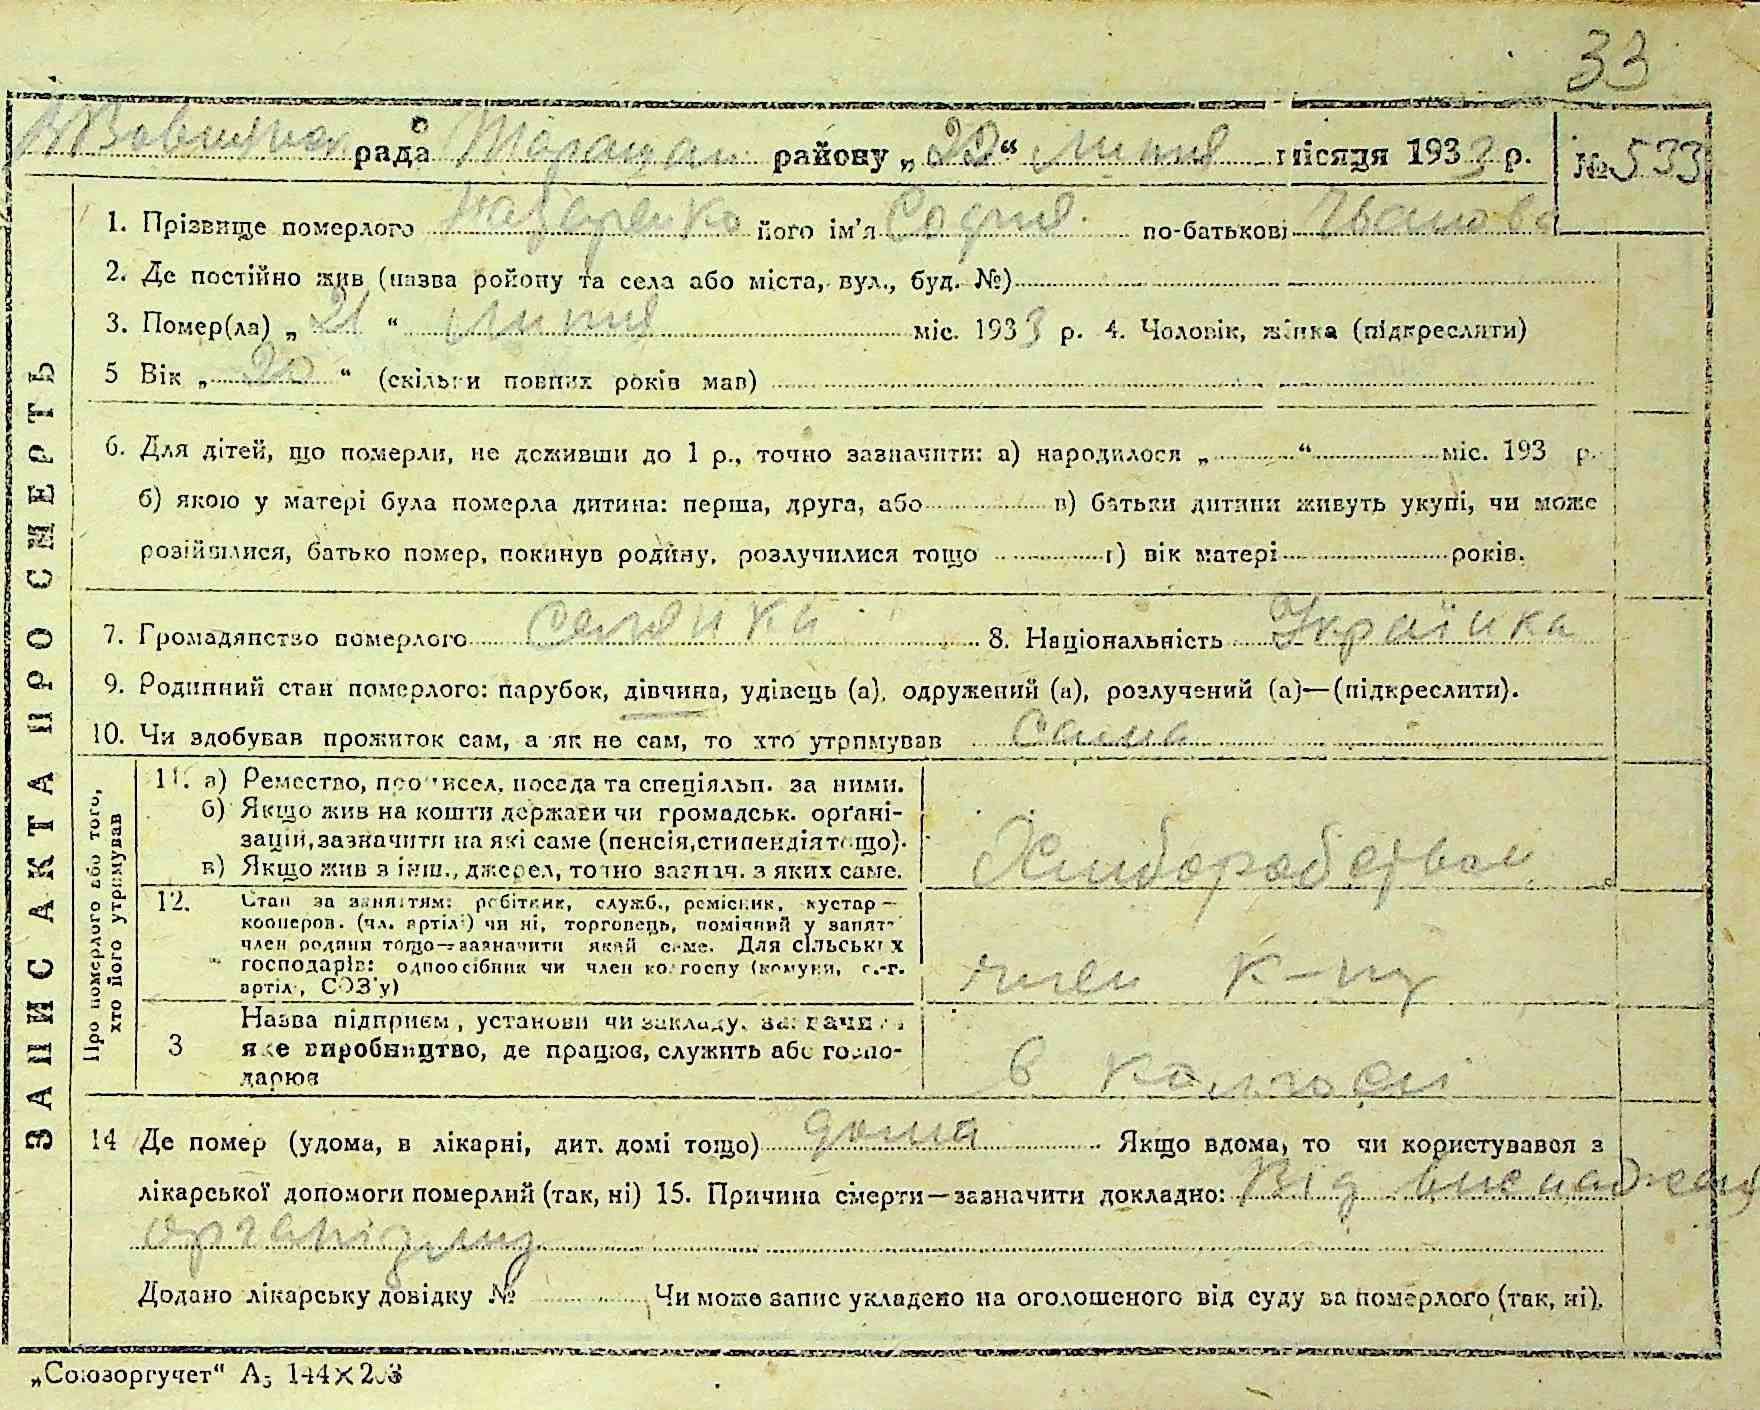 33
рада районну „22“ липня місяця 1933 р. № 533
1. Прізвище померлого його ім'я Софія по-батькові Іванова
2. Де постійно жив (назва ройону та села або міста, вул., буд. №)
3. Помер(ла) „21“ липня міс. 1933 р. 4. Чоловік, жінка (підкреслити)
5 Вік „20“ (скільки повних років мав)
6. Для дітей, що померли, не доживши до 1 р., точно зазначити: а) народилося „ “ міс. 193 р.
б) якою у матері була померла дитина: перша, друга, або в) батьки дитини живуть укупі, чи може
розійшлися, батько помер, покинув родину, розлучилися тощо г) вік матері років.
7. Громадянство померлого селянка 8. Національність Українка
9. Родинний стан померлого: парубок, дівчина, удівець (а), одружений (а), розлучений (а)—(підкреслити).
10. Чи здобував прожиток сам, а як не сам, то хто утримував сама
ЗАПИС АКТА ПРО СМЕРТЬ
Про померлого або того,
хто його утримував
11. а) Ремество, промисел, посада та спеціяльн. за ними.
б) Якщо жив на кошти держави чи громадськ. орґані-
зацій, зазначити на які саме (пенсія, стипендія тощо).
в) Якщо жив з інш., джерел, точно зазнач. з яких саме.
Хліборобством
12. Стан за заняттям: робітник, служб., ремісник, кустар—
кооперов. (чл. артілі) чи ні, торговець, помічний у занят-
член родини тощо—зазначити який саме. Для сільських
господарів: одноосібник чи член колгоспу (комуни, с.-г.
артіл., СОЗ'у)
член к-пу
3 Назва підприєм, установи чи закладу, зазначи
яке виробництво, де працюв, служить або госпо-
дарюв
в колгоспі
14 Де помер (удома, в лікарні, дит. домі тощо) дома Якщо вдома, то чи користувався з
лікарської допомоги померлий (так, ні) 15. Причина смерти—зазначити докладно: Від виснаження
організму
Додано лікарську довідку № Чи може запис укладено на оголошеного від суду за померлого (так, ні).
„Союзоргучет“ А5 144×203